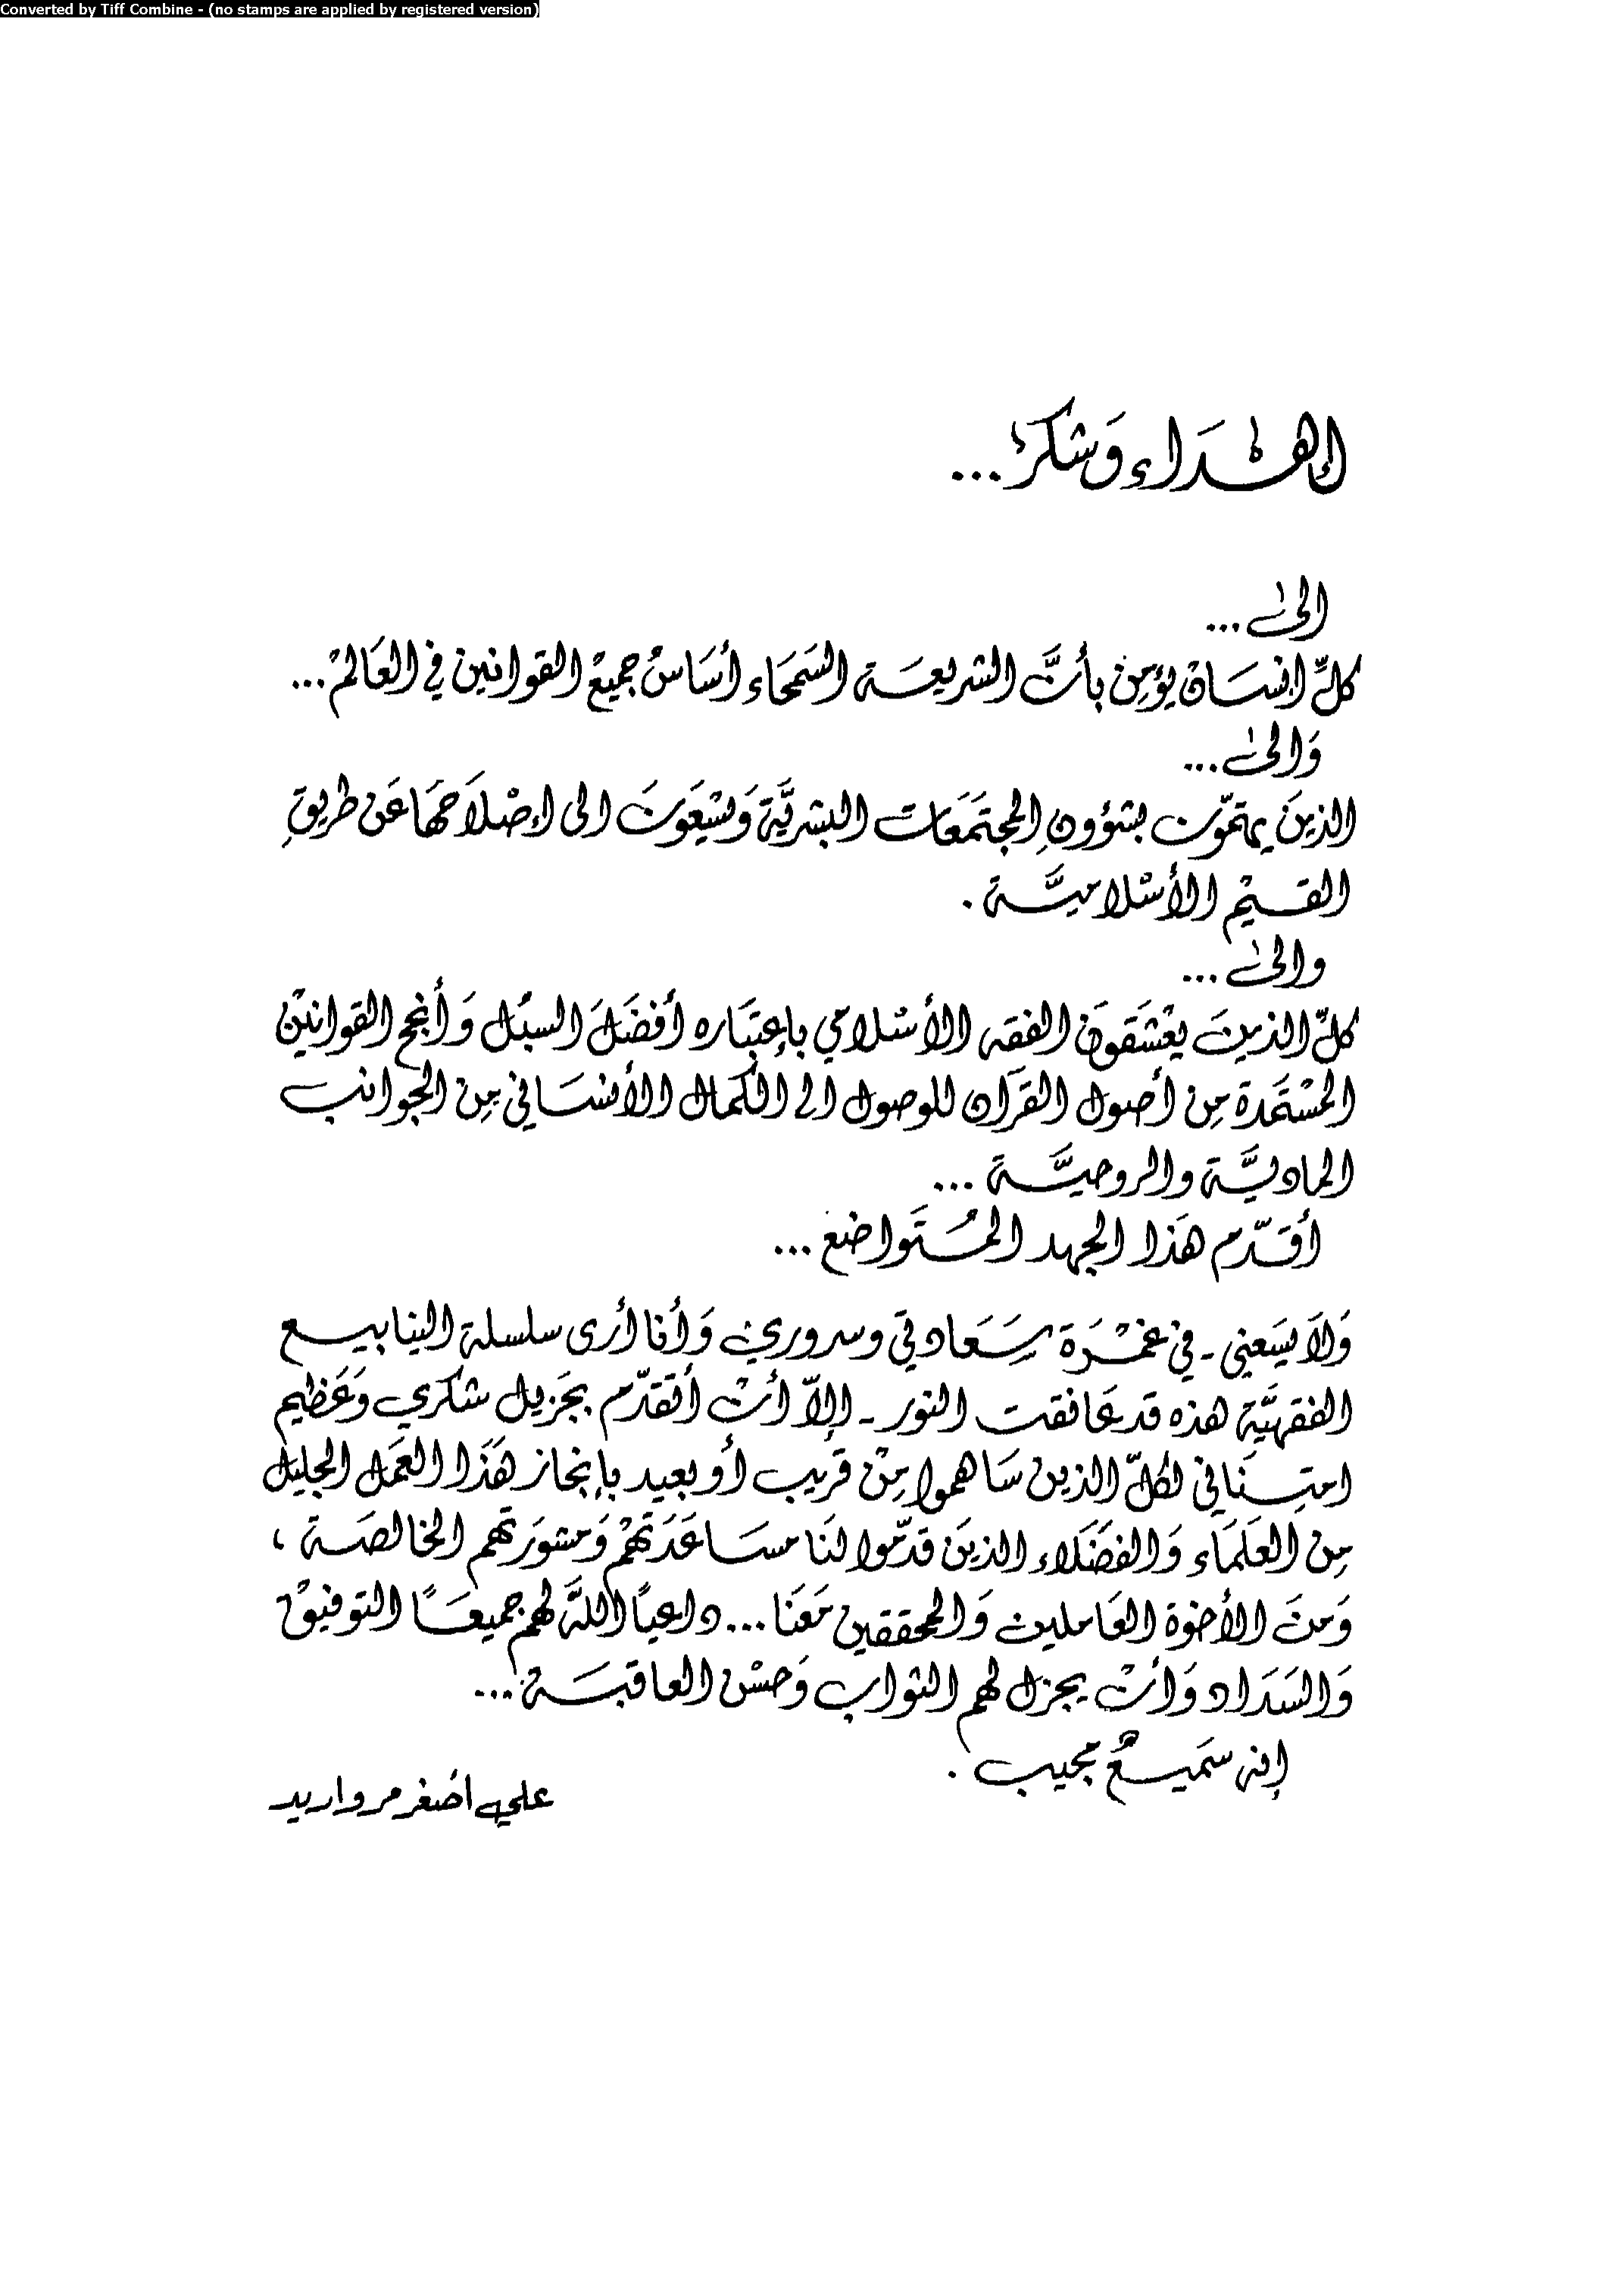 Converted by Tiff Combine - (no stamps are applied by registered version)
إهداء وَشكر...
الى...
كلِّ انسَان يؤمِن بأنَّ الشريعَة السَمحَاء أسَاسُ جميعْ القوانين في العَالمْ...
وَالى...
الذينَ يهتمّون بشؤونِ المجتَمَعَات البشريَّة وَيسْعَونَ الى إصْلاَحهَا عَن طريقِ
القيمْ الأسْلاميَّة .
والى...
كلِّ الذينَ يعْشَقونَ الفقه الأسْلامي بإعتبَاره أفضَلَ السبُل وَأنجح القوانيْن
المسْتَمدة مِن أصول القرآن للوصول الى الكمال الأنسَاني مِن الجوانب
الماديَّة والروحيَّة ...
أقدّم هَذا الجهد المُتَواضع ...
وَلاَ يسَعني - في غمْرَة سَعَادتي وسروري وَأنا أرى سلسلة الينابيع
الفقهيَّة هذه قد عَانقت النور - إلاّ أنْ أتقدّم بجَزيل شكري وَعَظيم
امتِنَاني لكلّ الذين سَاهموا مِنْ قريب أو بعيد بإنجاز هَذا العَمل الجليل
مِن العلَمَاء وَالفضَلاء الذينَ قدّموا لنَا مسَاعَدَتهمْ وَمشورَتهم الخالصَة ،
وَمنَ الأخوة العَاملين وَالمحققين مَعَنا... داعياً اللهَ لهم جميعَاً التوفيقْ
وَالسَدَاد وَأنْ يجزل لهم الثواب وَحسْن العاقبَة...
إنه سَميعٌ مجيب .
علي أصغر مرواريد